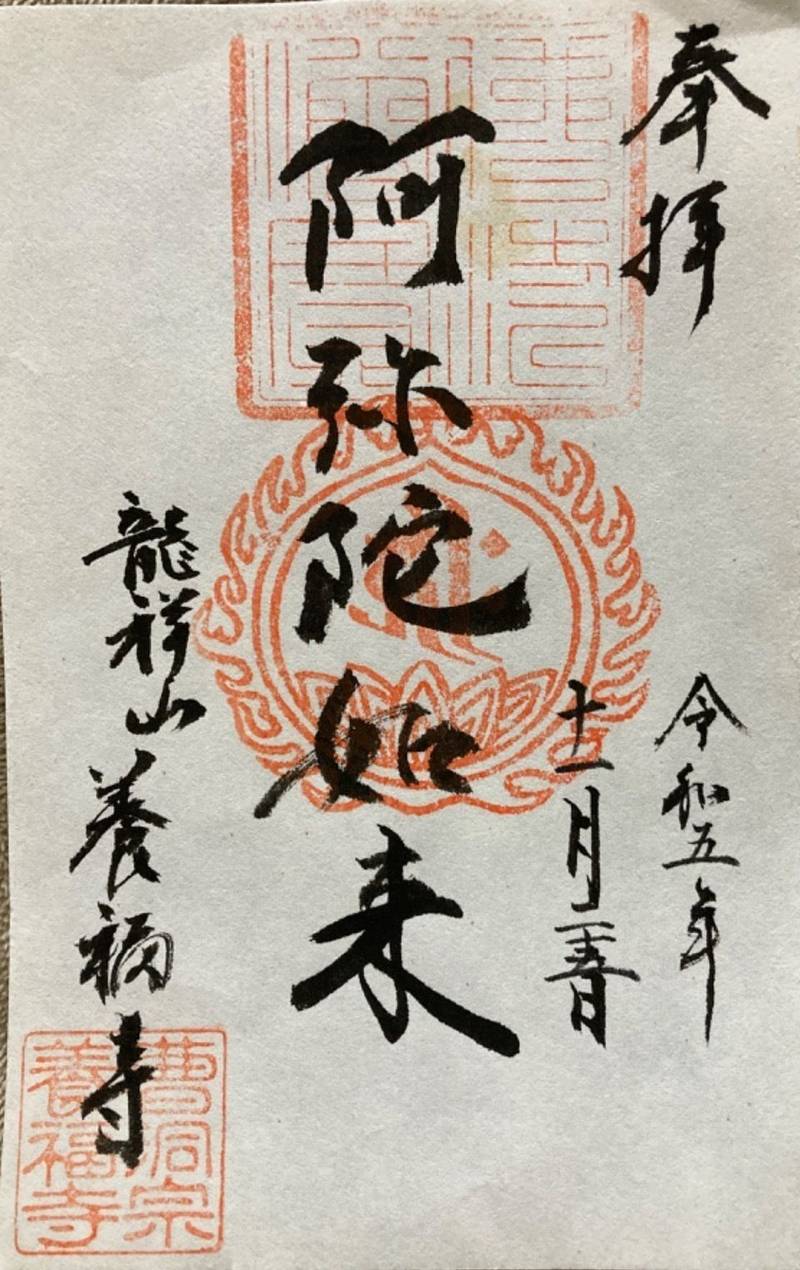 奉拝
令和五年
十一月二十春日
阿弥陀如来
龍祥山養福寺
曹洞宗
養福寺